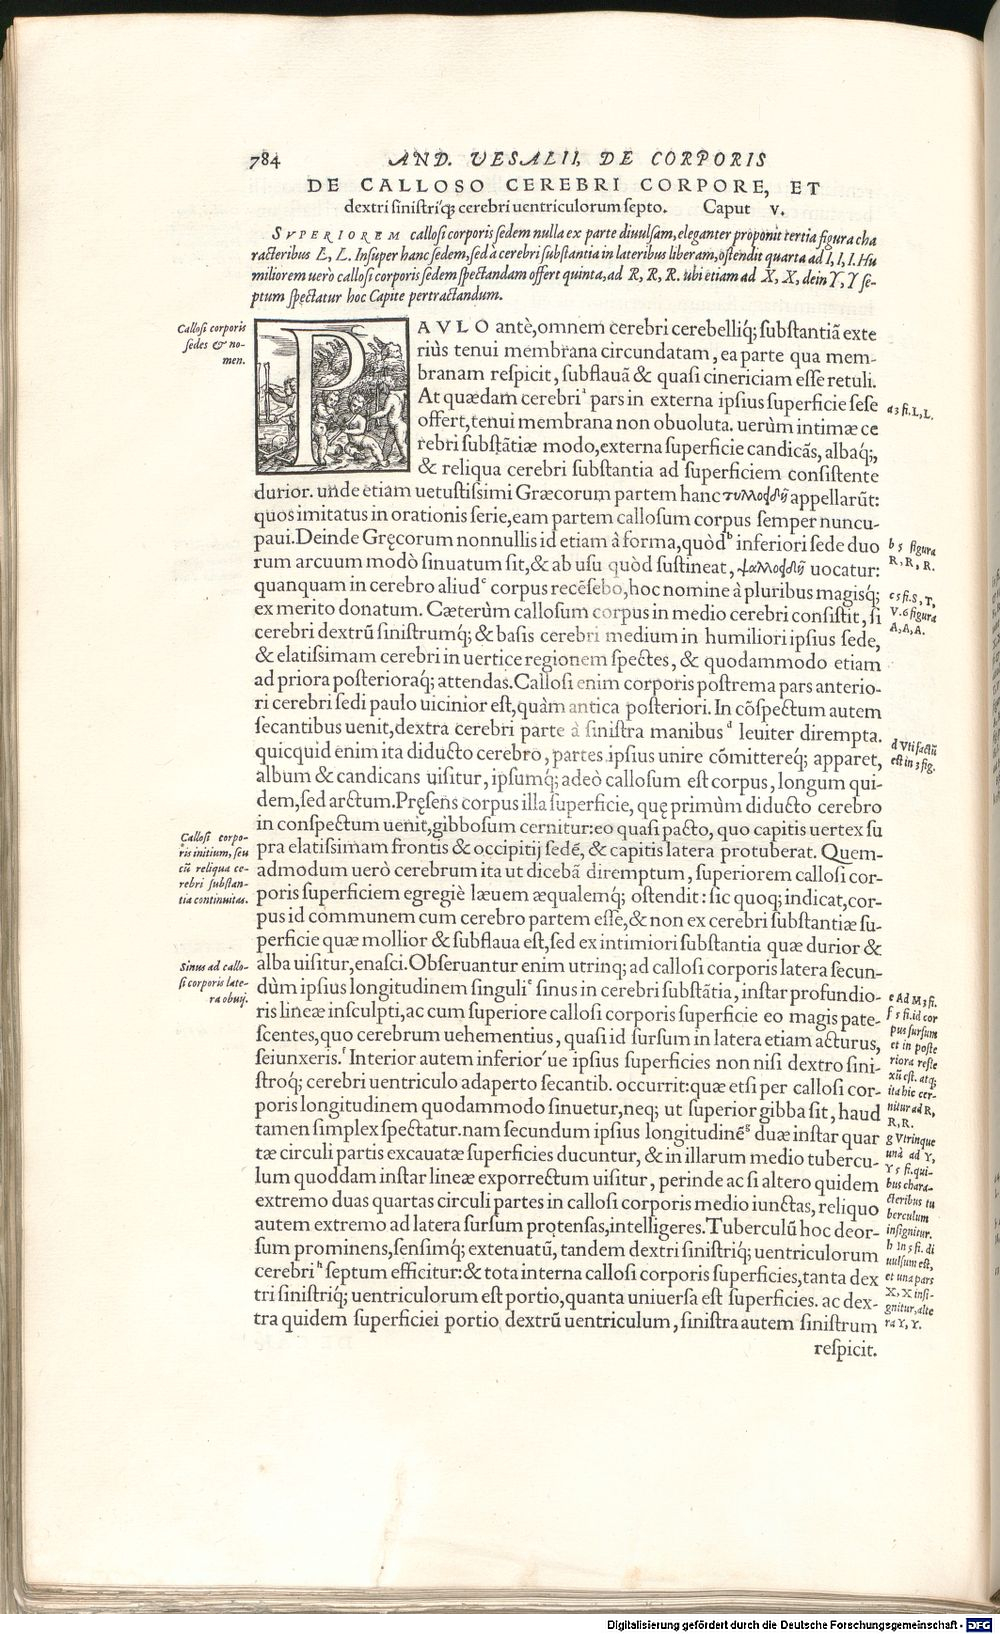 784 AND. VESALII, DE CORPORIS
DE CALLOSO CEREBRI CORPORE, ET
dextri siniſtriq́; cerebri uentriculorum ſepto. Caput V.
SVPERIOREM calloſi corporis ſedem nulla ex parte diuulſam, eleganter proponit tertia figura cha
racteribus L, L. Inſuper hanc ſedem, ſed à cerebri ſubſtantia in lateribus liberam, oſtendit quarta ad I, I, I. Hu
miliorem uerò calloſi corporis ſedem ſpectandam offert quinta, ad R, R, R. ubi etiam ad X, X, dein Y, Y ſe-
ptum ſpectatur hoc Capite pertractandum.
Calloſi corporis
ſedes & no-
men.
PAVLO antè, omnem cerebri cerebelliq́; ſubſtantiã exte
riùs tenui membrana circundatam, ea parte qua mem-
branam reſpicit, ſubflauã & quaſi cinericiam eſſe retuli.
At quædam cerebri ᵃ pars in externa ipſius ſuperficie ſeſe
offert, tenui membrana non obuoluta. uerùm intimæ ce
rebri ſubſtãtiæ modo, externa ſuperficie candicãs, albaq́;,
& reliqua cerebri ſubſtantia ad ſuperficiem conſiſtente
durior. unde etiam uetuſtiſsimi Græcorum partem hanc τυλλοειδῆ appellarũt:
quos imitatus in orationis ſerie, eam partem calloſum corpus ſemper nuncu-
paui. Deinde Gręcorum nonnullis id etiam à forma, quòd ᵇ inferiori ſede duo
rum arcuum modò ſinuatum ſit, & ab uſu quòd ſuſtineat, ψαλλοειδῆ uocatur:
quanquam in cerebro aliud ᶜ corpus recẽſebo, hoc nomine à pluribus magisq́;
ex merito donatum. Cæterùm calloſum corpus in medio cerebri conſiſtit, ſi
cerebri dextrũ ſiniſtrumq́; & baſis cerebri medium in humiliori ipſius ſede,
& elatiſsimam cerebri in uertice regionem ſpectes, & quodammodo etiam
ad priora poſterioraq́; attendas. Calloſi enim corporis poſtrema pars anterio-
ri cerebri ſedi paulo uicinior eſt, quàm antica poſteriori. In cõſpectum autem
ſecantibus uenit, dextra cerebri parte à ſiniſtra manibus ᵈ leuiter dirempta.
quicquid enim ita diducto cerebro, partes ipſius unire cõmittereq́; apparet,
album & candicans uiſitur, ipſumq́; adeò calloſum eſt corpus, longum qui-
dem, ſed arctum. Pręſens corpus illa ſuperficie, quę primùm diducto cerebro
in conſpectum uenit, gibboſum cernitur: eo quaſi pacto, quo capitis uertex ſu
pra elatiſsimam frontis & occipitij ſedẽ, & capitis latera protuberat. Quem-
admodum uerò cerebrum ita ut dicebã diremptum, ſuperiorem calloſi cor-
poris ſuperficiem egregiè læuem æqualemq́; oſtendit: ſic quoq; indicat, cor-
pus id communem cum cerebro partem eſſe, & non ex cerebri ſubſtantiæ ſu-
perficie quæ mollior & ſubflaua eſt, ſed ex intimiori ſubſtantia quæ durior &
alba uiſitur, enaſci. Obſeruantur enim utrinq; ad calloſi corporis latera ſecun-
dùm ipſius longitudinem ſinguli ᵉ ſinus in cerebri ſubſtãtia, inſtar profundio-
ris lineæ inſculpti, ac cum ſuperiore calloſi corporis ſuperficie eo magis pate-
ſcentes, quo cerebrum uehementius, quaſi id ſurſum in latera etiam acturus,
ſeiunxeris. ᶠ Interior autem inferior´ue ipſius ſuperficies non niſi dextro ſini-
ſtroq́; cerebri uentriculo adaperto ſecantib. occurrit: quæ etſi per calloſi cor-
poris longitudinem quodammodo ſinuetur, neq; ut ſuperior gibba ſit, haud
tamen ſimplex ſpectatur. nam ſecundum ipſius longitudinẽ ᵍ duæ inſtar quar
tæ circuli partis excauatæ ſuperficies ducuntur, & in illarum medio tubercu-
lum quoddam inſtar lineæ exporrectum uiſitur, perinde ac ſi altero quidem
extremo duas quartas circuli partes in calloſi corporis medio iunctas, reliquo
autem extremo ad latera ſurſum protenſas, intelligeres. Tuberculũ hoc deor-
ſum prominens, ſenſimq́; extenuatũ, tandem dextri ſiniſtriq́; uentriculorum
cerebri ʰ ſeptum efficitur: & tota interna calloſi corporis ſuperficies, tanta dex
tri ſiniſtriq́; uentriculorum eſt portio, quanta uniuerſa eſt ſuperficies. ac dex-
tra quidem ſuperficiei portio dextrũ uentriculum, ſiniſtra autem ſiniſtrum
reſpicit.
Calloſi corpo-
ris initium, ſeu
cũ reliqua ce-
rebri ſubſtan-
tia continuitas.
Sinus ad callo-
ſi corporis late-
ra obuij.
a 3 fi. L, L.
b 5 figura
R, R, R.
c 5 fi. S, T,
V. 6 figura
A, A, A.
d Vti factũ
eſt in 3 fig.
e Ad M 3 fi.
f 5 fi. id cor
pus ſurſum
et in poſte
riora refle
xũ eſt. atq;
ita hic cer-
nitur ad R,
R, R.
g Vtrinque
unà ad Y,
Y 5 fi. qui-
bus chara-
cteribus tu
berculum
inſignitur.
h In 5 fi. di
uulſum eſt,
et una pars
X, X inſi-
gnitur, alte
ra Y, Y.
Digitalisierung gefördert durch die Deutsche Forschungsgemeinschaft - DFG